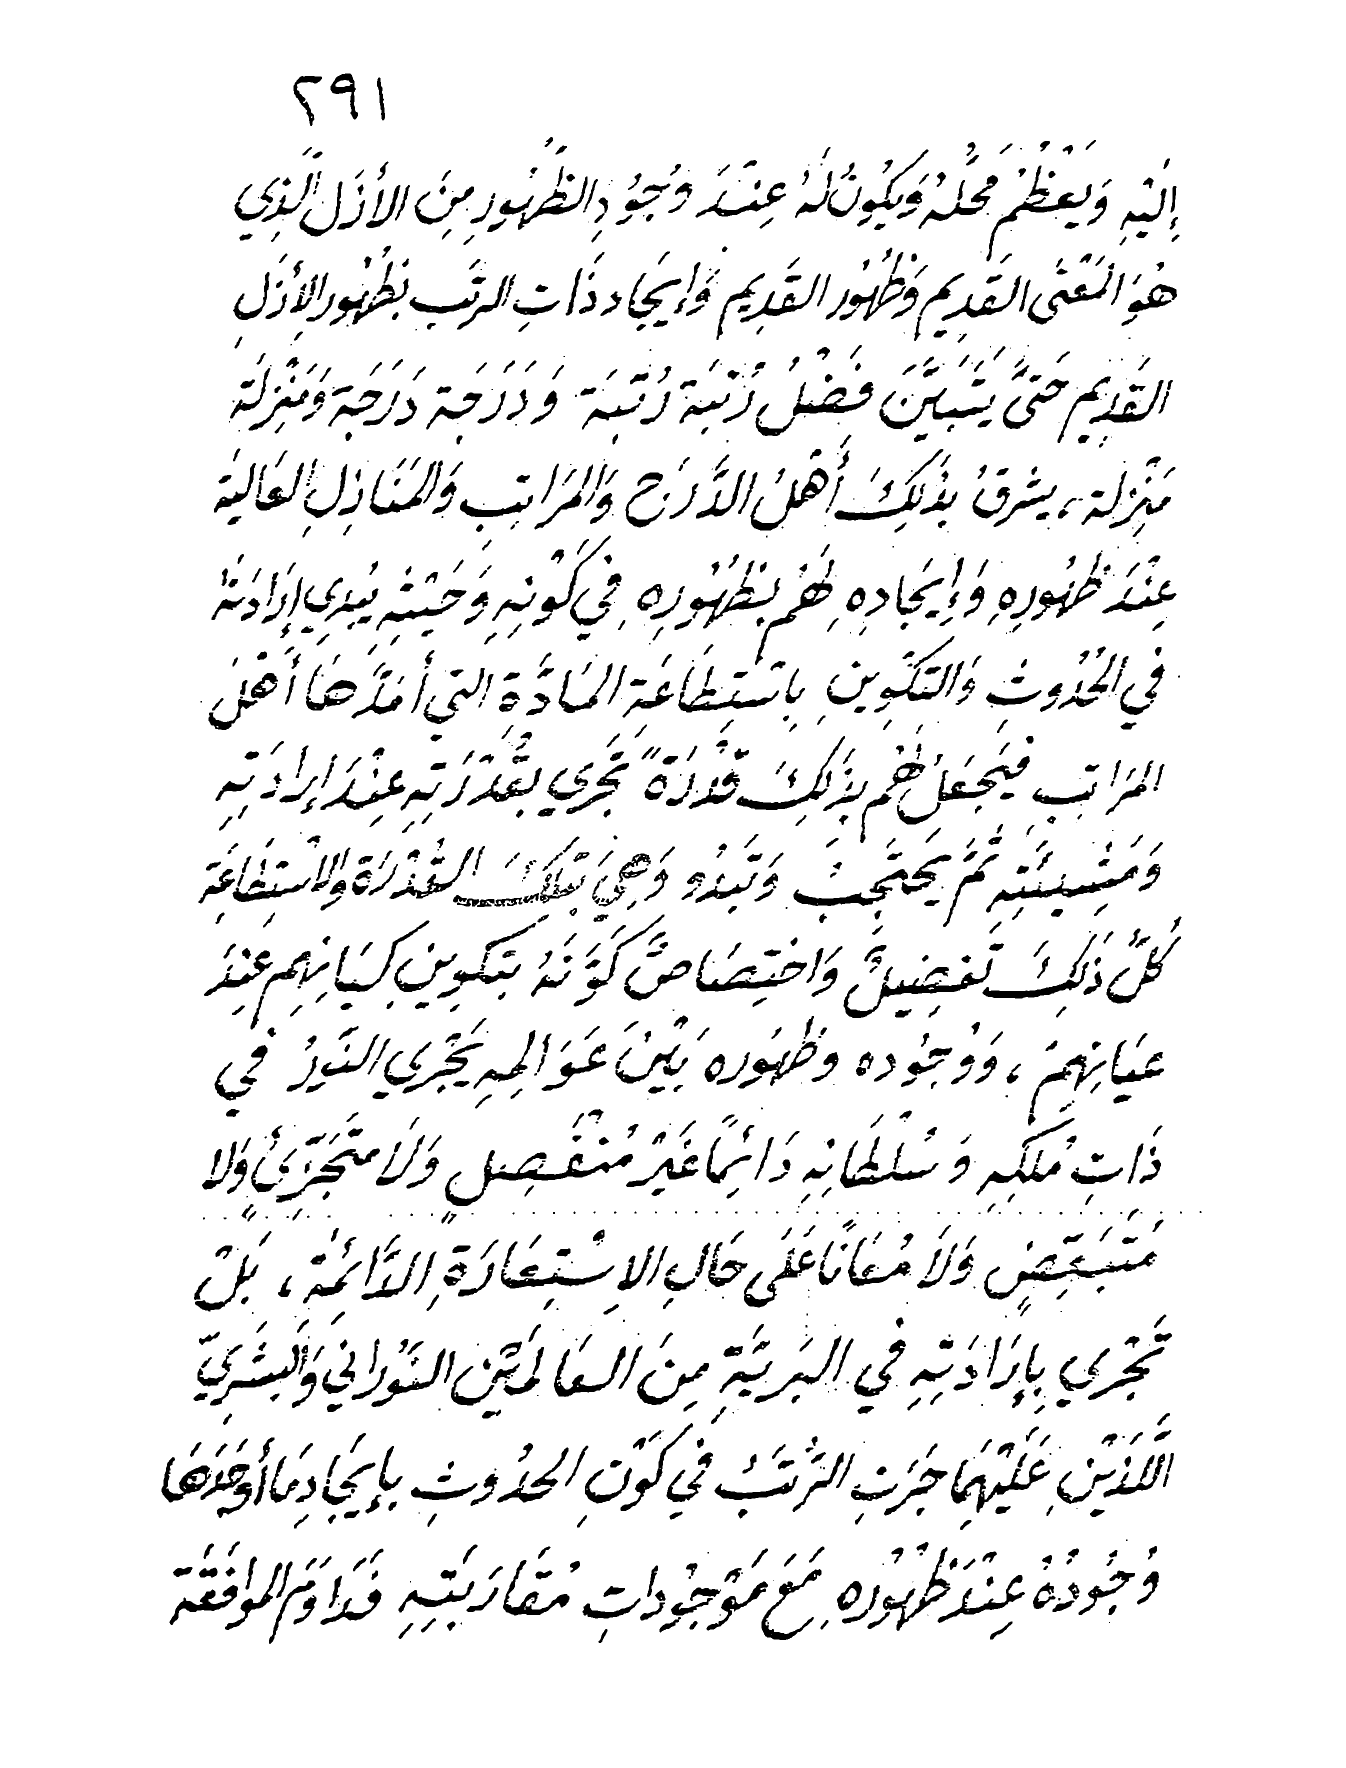 ٢٩١
إِلَيْهِ وَيَعْظُمْ مَحَلُّهُ وَيَكُونُ لَهُ عِنْدَ وُجُودِ الظُّهُورِ مِنَ الأَزَلِ الَّذِي
هُوَ المَعْنَى القَدِيم وَظُهُور القَدِيم وَإِيجَاد ذَاتِ الرتَب بظُهُور الأَزَلِ
القَدِيم حَتَّى يَتَبَيَّنَ فَضْلُ رُتْبَة رُتْبَة وَدَرَجَة دَرَجَة وَمَنْزِلَة
مَنْزِلة، يشرقُ بِذَلِكَ أَهْلُ الدَّرَج وَالمَرَاتِب وَالمَنَازِلِ العَالِيَة
عِنْدَ ظهُورِهِ وَإِيجَادِهِ لَهُم بِظهُورِهِ فِي كَوْنِهِ وَحَيْثِهِ يُبْدِي إِرَادَتهُ
فِي الحُدُوثِ وَالتكْوِينِ بِاسْتِطَاعَةِ المَادَّةِ التِي أَمَدَّهَا أَهْلَ
المَرَاتِبِ فَيَجْعَلُ لَهُم بِذَلِكَ قُدْرَةً تَجْرِي بقُدْرَتِهِ عِنْدَ إِرادَتِهِ
وَمَشِيئَتِهِ ثُمَّ يَحْتَجِبُ وَتَبْدُو وَهِيَ بتِلْكَ القُدْرَة والاسْتِطَاعَة
كُلُّ ذَلِكَ تَفضِيلٌ وَاختِصَاصٌ كَوَّنَهُ بتكوِينِ كِيَانِهِم عِنْدَ
عيَانِهِمْ، وَوُجُوده وظهُوره بَيْنَ عَوَالِمِهِ يَجْرِي النَّيِّرُ فِي
ذَاتِ مُلكِهِ وَسُلْطَانِهِ دَائِمًا غَيْرَ مُنْفَصِلٍ وَلَا مُتَجَزِّئٍ وَلا
مُتَبَعِّضٍ وَلَا مُعَانًا عَلَى حَالِ الاسْتِعَارَةِ الدَّائِمَة، بَلْ
تَجْرِي بِإِرَادَتِهِ فِي البَرِيَّةِ مِنَ العَالَمَيْن النُّورَانِي وَالبَشَرِيّ
اللَّذَيْنِ عَلَيْهِمَا جَرَتِ الرُّتَبُ فِي كَوْنِ الحدُوثِ بإِيجَادِ مَا أَوْجَدَهَا
وُجُودُهُ عِنْدَ ظُهُورِهِ مَعَ مَوْجُودَاتِ مُقَارَبَتِهِ فَدَاوَمَ الموَافَقَة